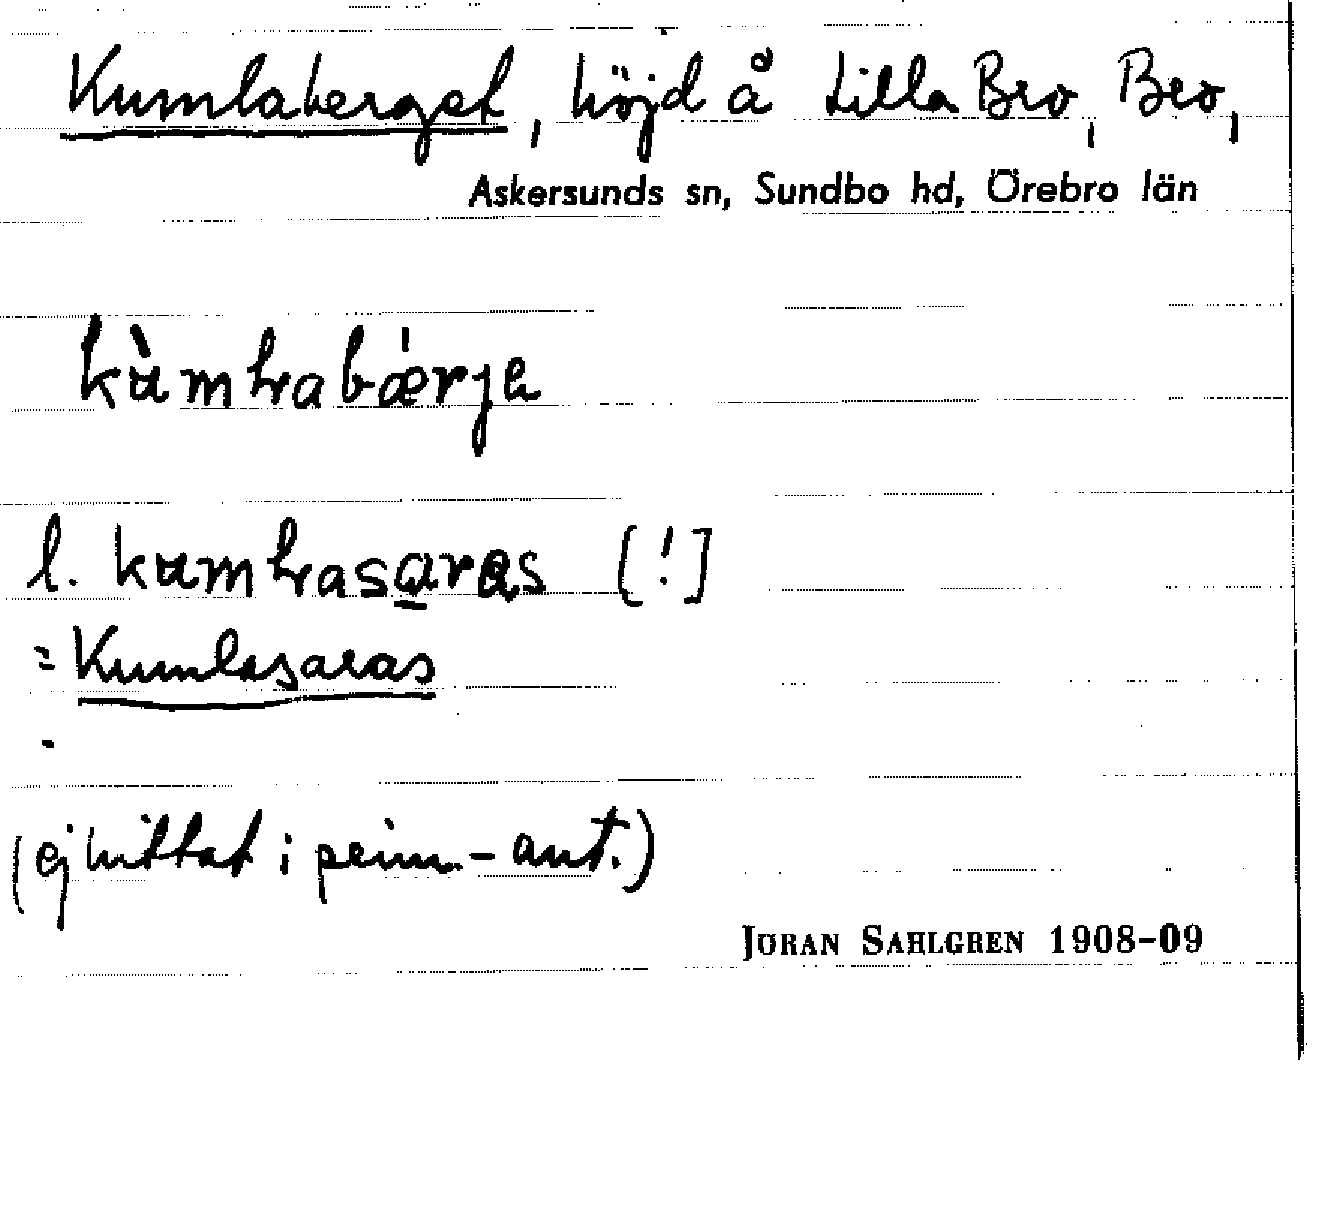 Kumlaberget, höjd å Lilla Bro, Bro,
Askersunds sn, Sundbo hd, Örebro län
kùmlrabǽrje
l. kumlrasaras [!]
= Kumlasaras
(ej hittat i prim.-ant.)
JÖRAN SAHLGREN 1908-09